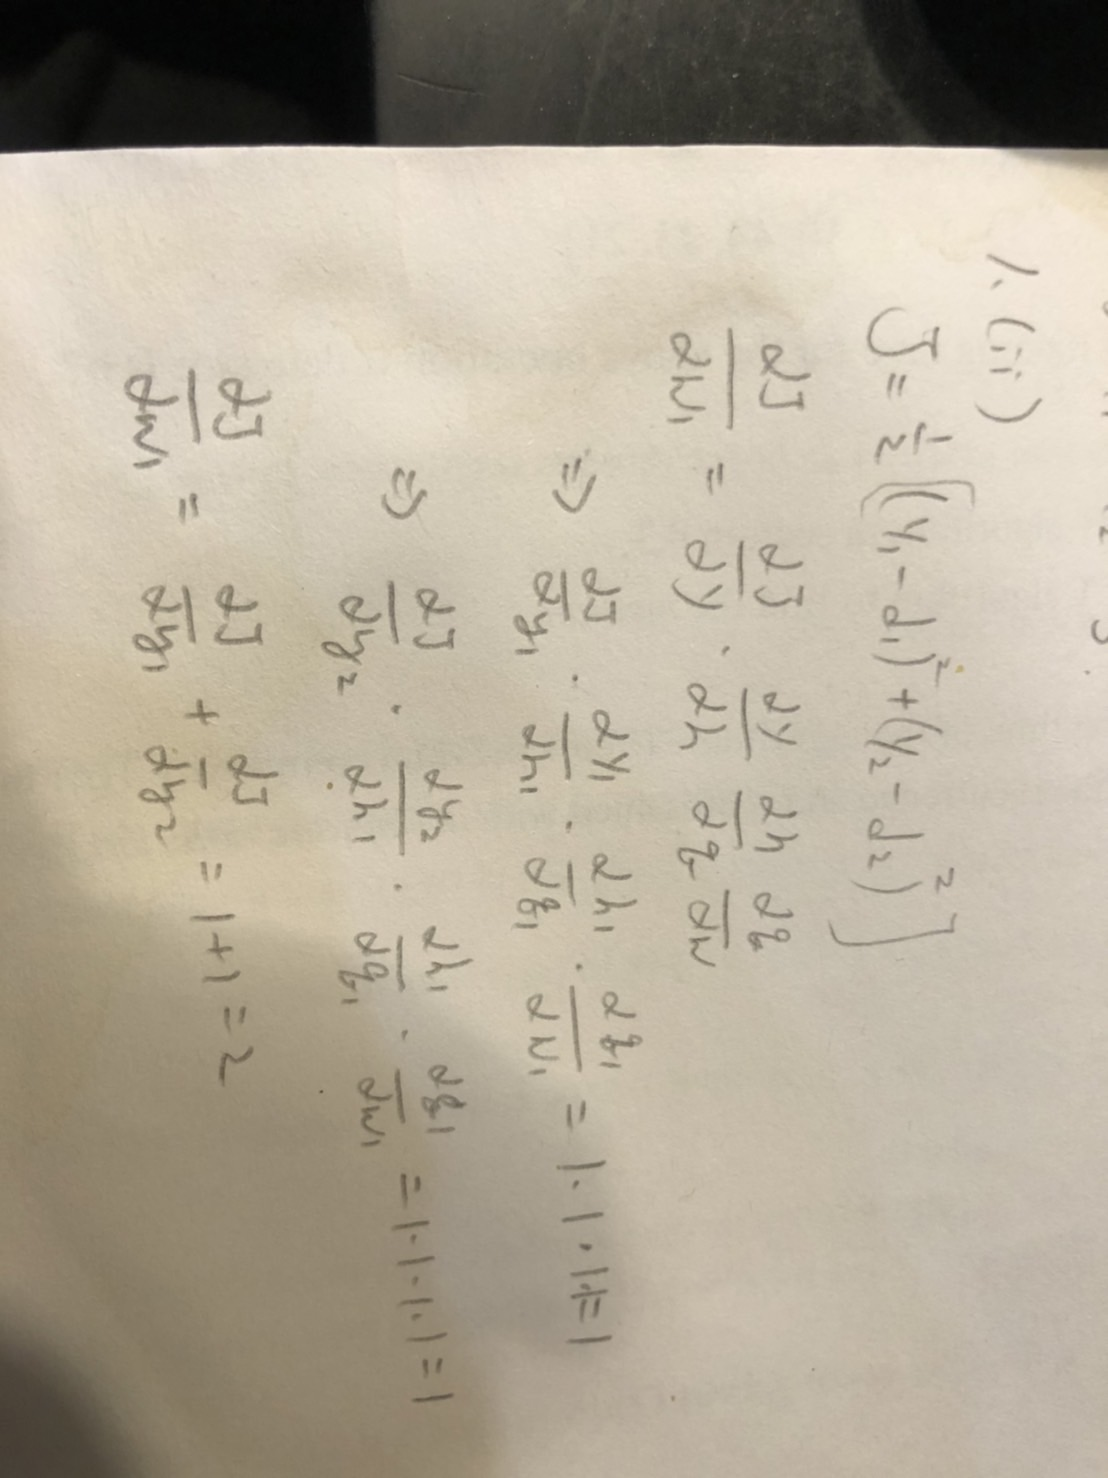 1. (ii)
J = 1/2 [(y₁ - d₁)² + (y₂ - d₂)²]
∂J/∂w₁ = ∂J/∂y · ∂y/∂h ∂h/∂z ∂z/∂w
⇒ ∂J/∂y₁ · ∂y₁/∂h₁ · ∂h₁/∂z₁ · ∂z₁/∂w₁ = 1·1·1·1=1
⇒ ∂J/∂y₂ · ∂y₂/∂h₁ · ∂h₁/∂z₁ · ∂z₁/∂w₁ = 1·1·1·1=1
∂J/∂w₁ = ∂J/∂y₁ + ∂J/∂y₂ = 1+1=2